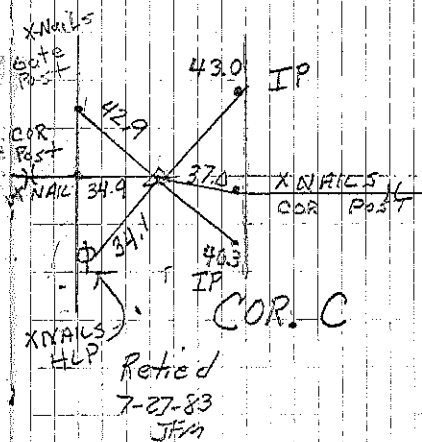 X-Nails
Gate
Post
43.0 IP
42.9
COR
Post
X NAIL 34.9 37.0 X NAILS
COR POST
34.1
40.3
IP
COR. C
X NAILS
HLP
Retied
7-27-83
JFM